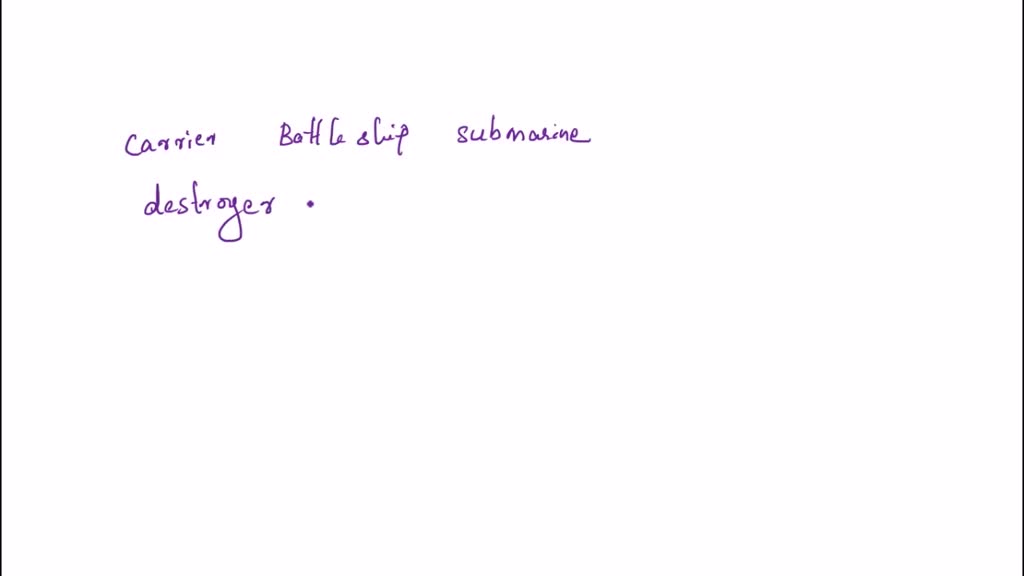 carrier Battleship submarine
destroyer .